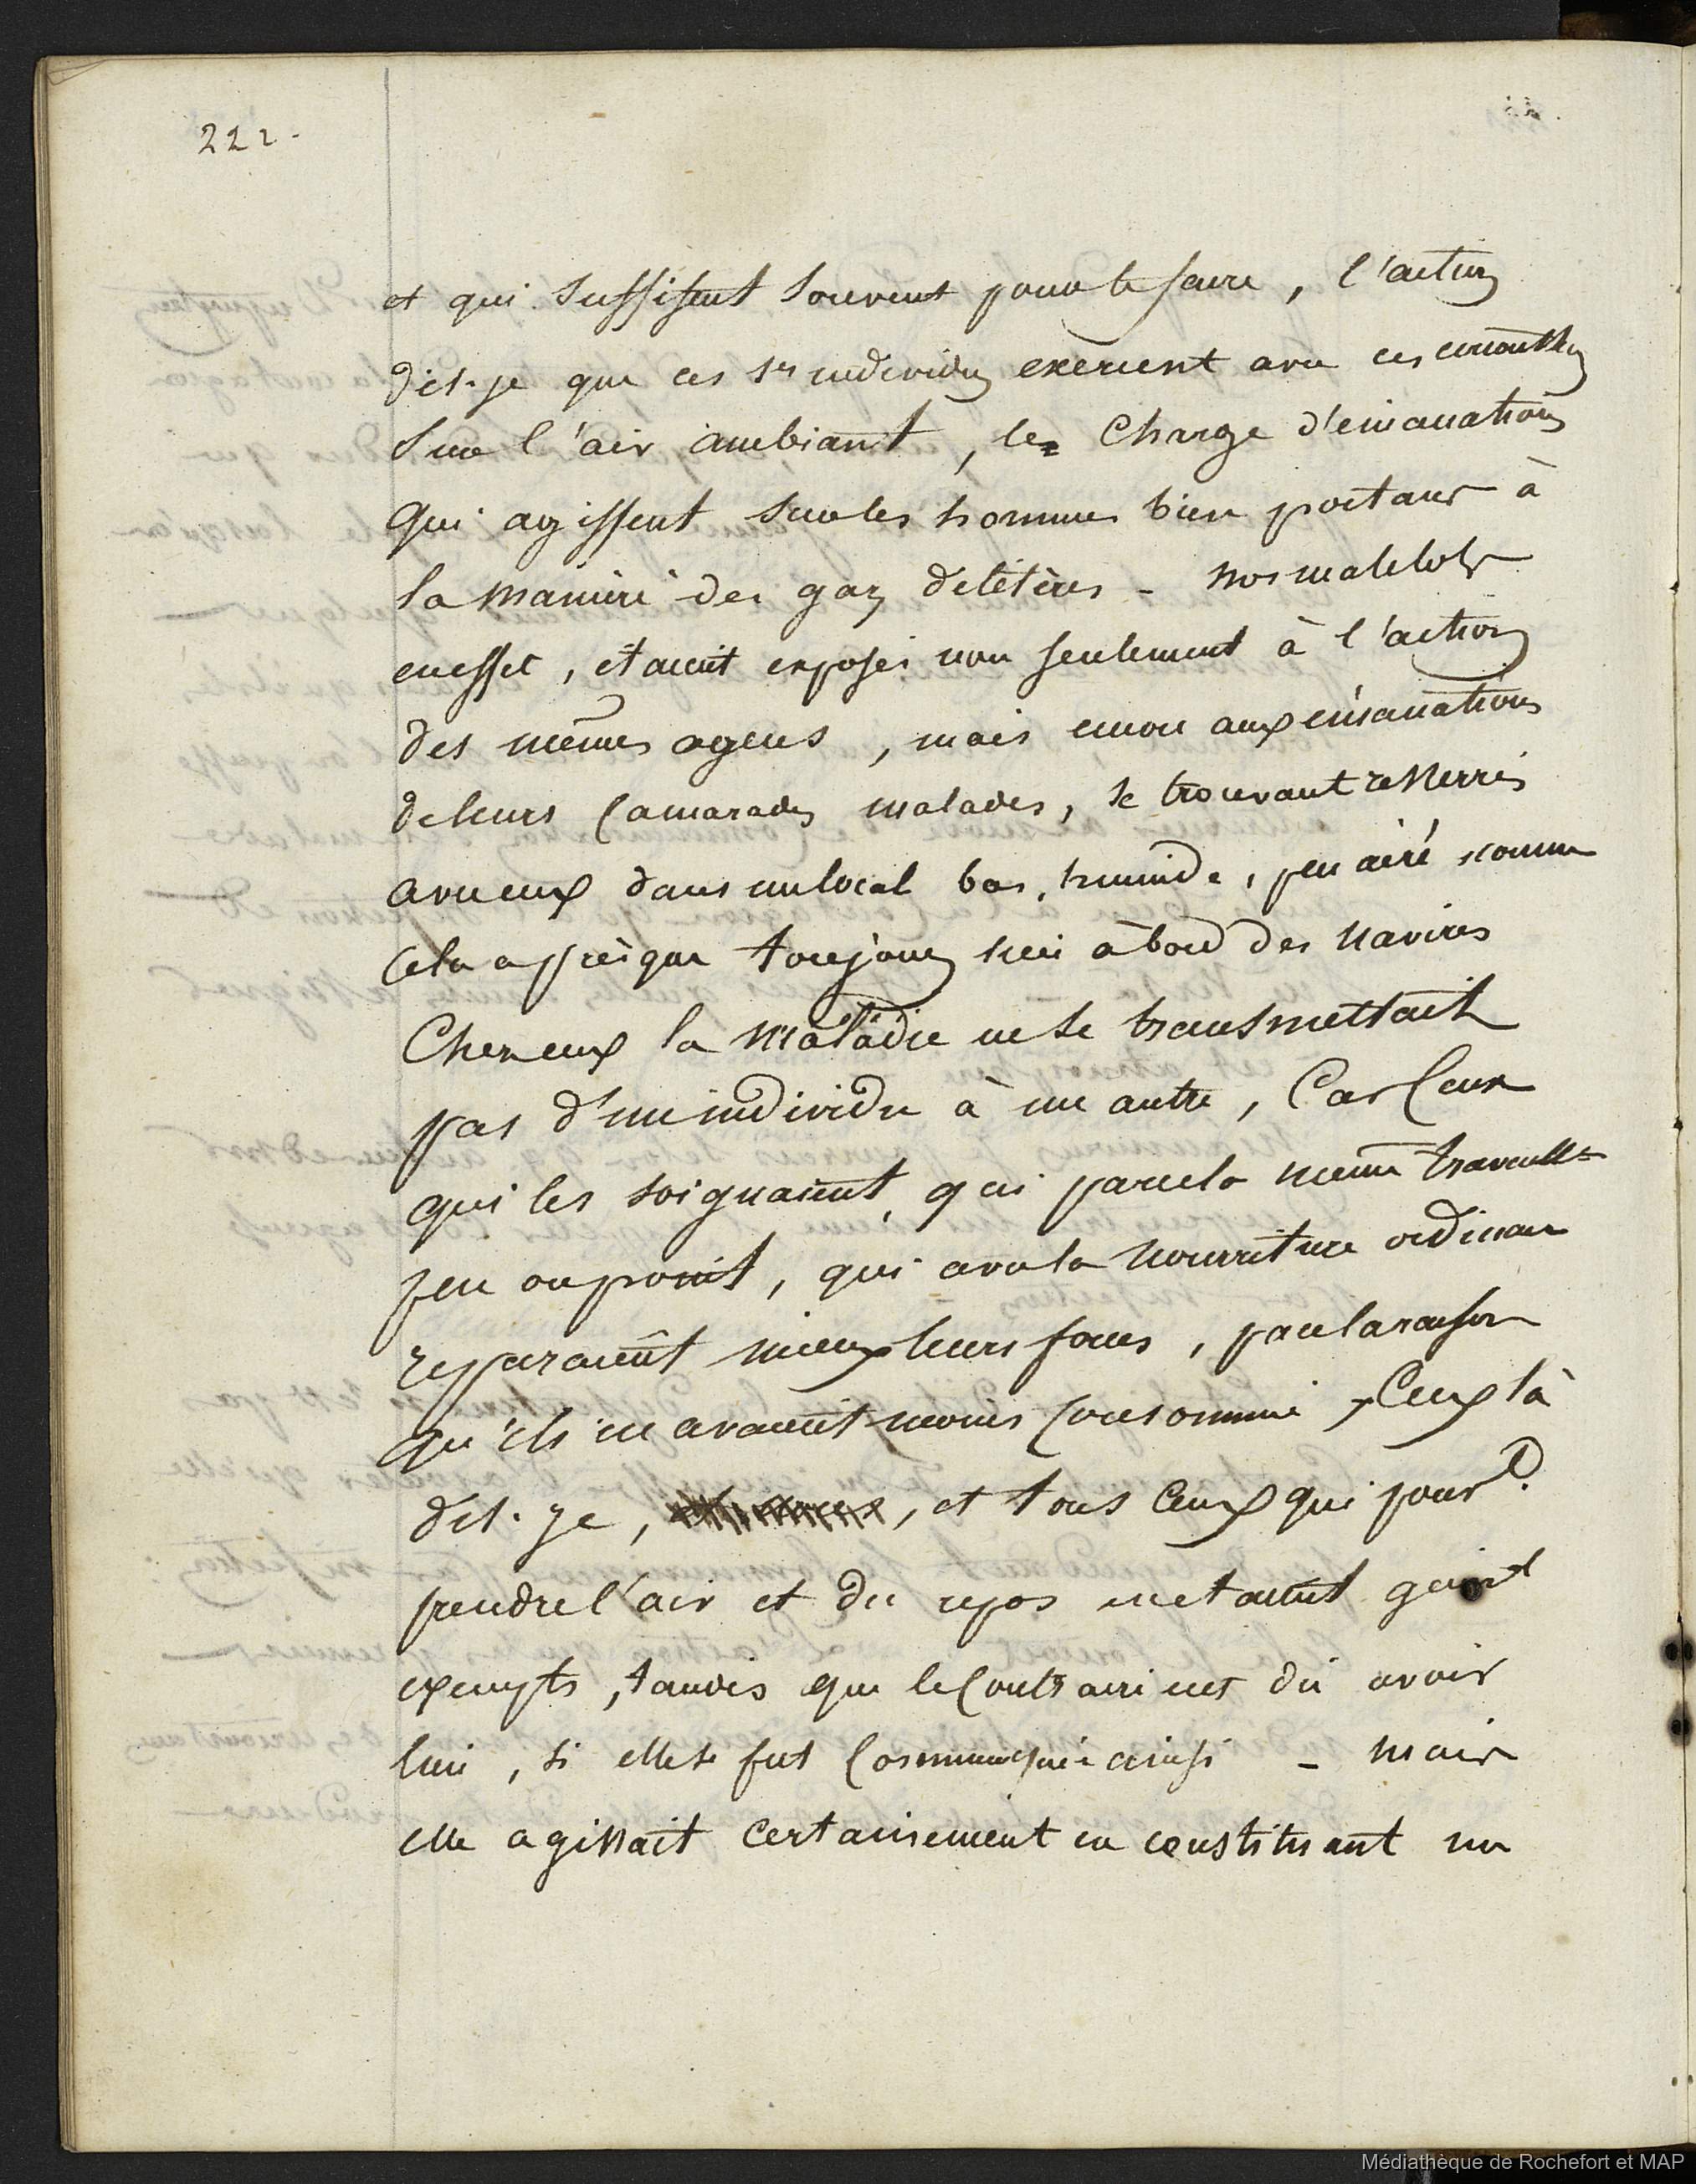 222.
et qui suffisent souvent pour le faire, l'action
dis-je que ces individus exercent avec ces
sur l'air ambiant, le charge d'émanations
qui agissent sur les hommes bien portans à
la maniere des gaz délétères - nos matelots
en effet, étaient exposés non seulement à l'action
des mêmes agens, mais encore aux émanations
de leurs camarades malades, se trouvant resserrés
avec eux dans un local bas, humide, peu airé comme
cela a presque toujours lieu à bord des navires
Chez eux la maladie ne se transmettait
pas d'un individu à un autre, Car Ceux
qui les soignaient, qui par cela même travaillt
peu ou point, qui avec la nourriture ordinaire
reparaient mieux leurs forces, par la raison
qu'ils en avaient moins consommé, Ceux là
dis-je, et tous ceux qui pouvt
prendre l'air et du repos en etaient
exempts, tandis que le contraire eut dû avoir
lieu, si elle se fut communiquée ainsi - mais
elle agissait certainement en constituant un
Médiathèque de Rochefort et MAP